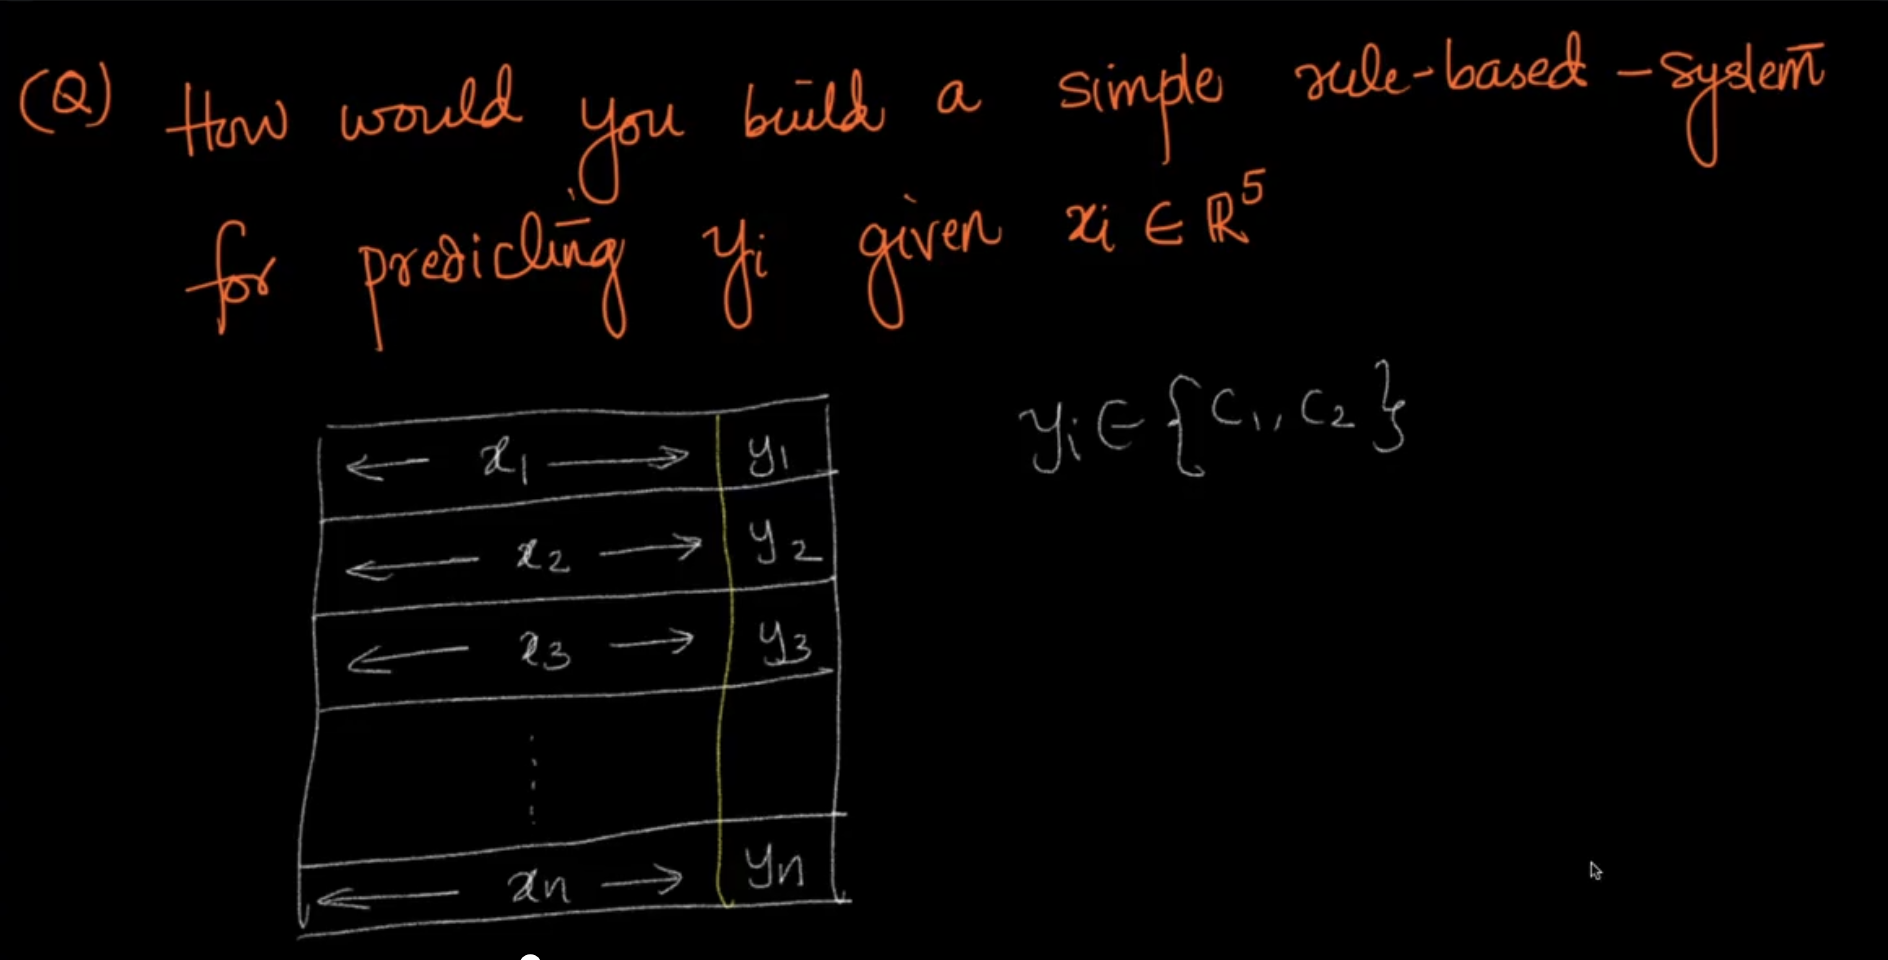 (Q) How would you build a simple rule-based-system
for predicting yi given xi ∈ ℝ^5
yi ∈ {C1, C2}
x1 y1
x2 y2
x3 y3
xn yn